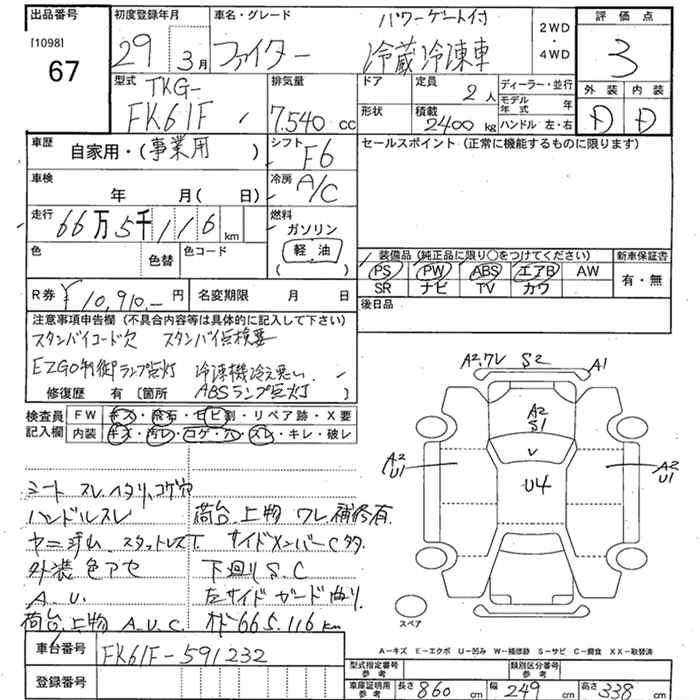 出品番号
[1098]
67
初度登録年月
29 3月
車名・グレード
パワーゲート付
ファイター 冷蔵冷凍車
2WD
・
4WD
評価点
3
外装 内装
D D
型式
TKG-
FK61F
排気量
7.540 cc
ドア
形状
定員
2人
積載
2400 kg
ディーラー・並行
モデル年式 年
ハンドル 左・右
車歴
自家用・(事業用)
シフト
F6
車検
年 月(日)
冷房
A/C
走行
66万5千116 km
燃料
ガソリン
軽油
( )
色
色替
色コード
R券 ¥10,910.- 円
名変期限 月 日
セールスポイント (正常に機能するものに限ります)
装備品 (純正品に限り○をつけてください)
PS PW ABS エアB AW
SR ナビ TV カワ
新車保証書
有・無
後日品
注意事項申告欄 (不具合内容等は具体的に記入して下さい)
スタンバイコード欠 スタンバイ点検要
EZGO制御ランプ点灯 冷凍機冷え悪い
ABSランプ点灯
修復歴 有 [箇所 ]
検査員記入欄
FW キズ・飛石・ヒビ割・リペア跡・X要
内装 キズ・汚レ・コゲ・穴・スレ・キレ・破レ
シート スレ、ヘタリ、コゲ穴
ハンドルスレ
荷台、上物 ワレ、補修有
サイドメンバーCタタ
外装 色アセ
下廻りS.C
A.U.
左サイドガード曲り
荷台、上物 A.U.C.
オド665.116km
A2,ワレ S2 A1
A2
S1
A2
U1
V
U4
A2
U1
スペア
A−キズ E−エクボ U−凹み W−補修跡 S−サビ C−腐食 XX−取替済
車台番号
FK61F-591232
登録番号
型式指定番号
参考
類別区分番号
参考
車庫証明用
参考
長さ 860 cm
幅 249 cm
高さ 338 cm